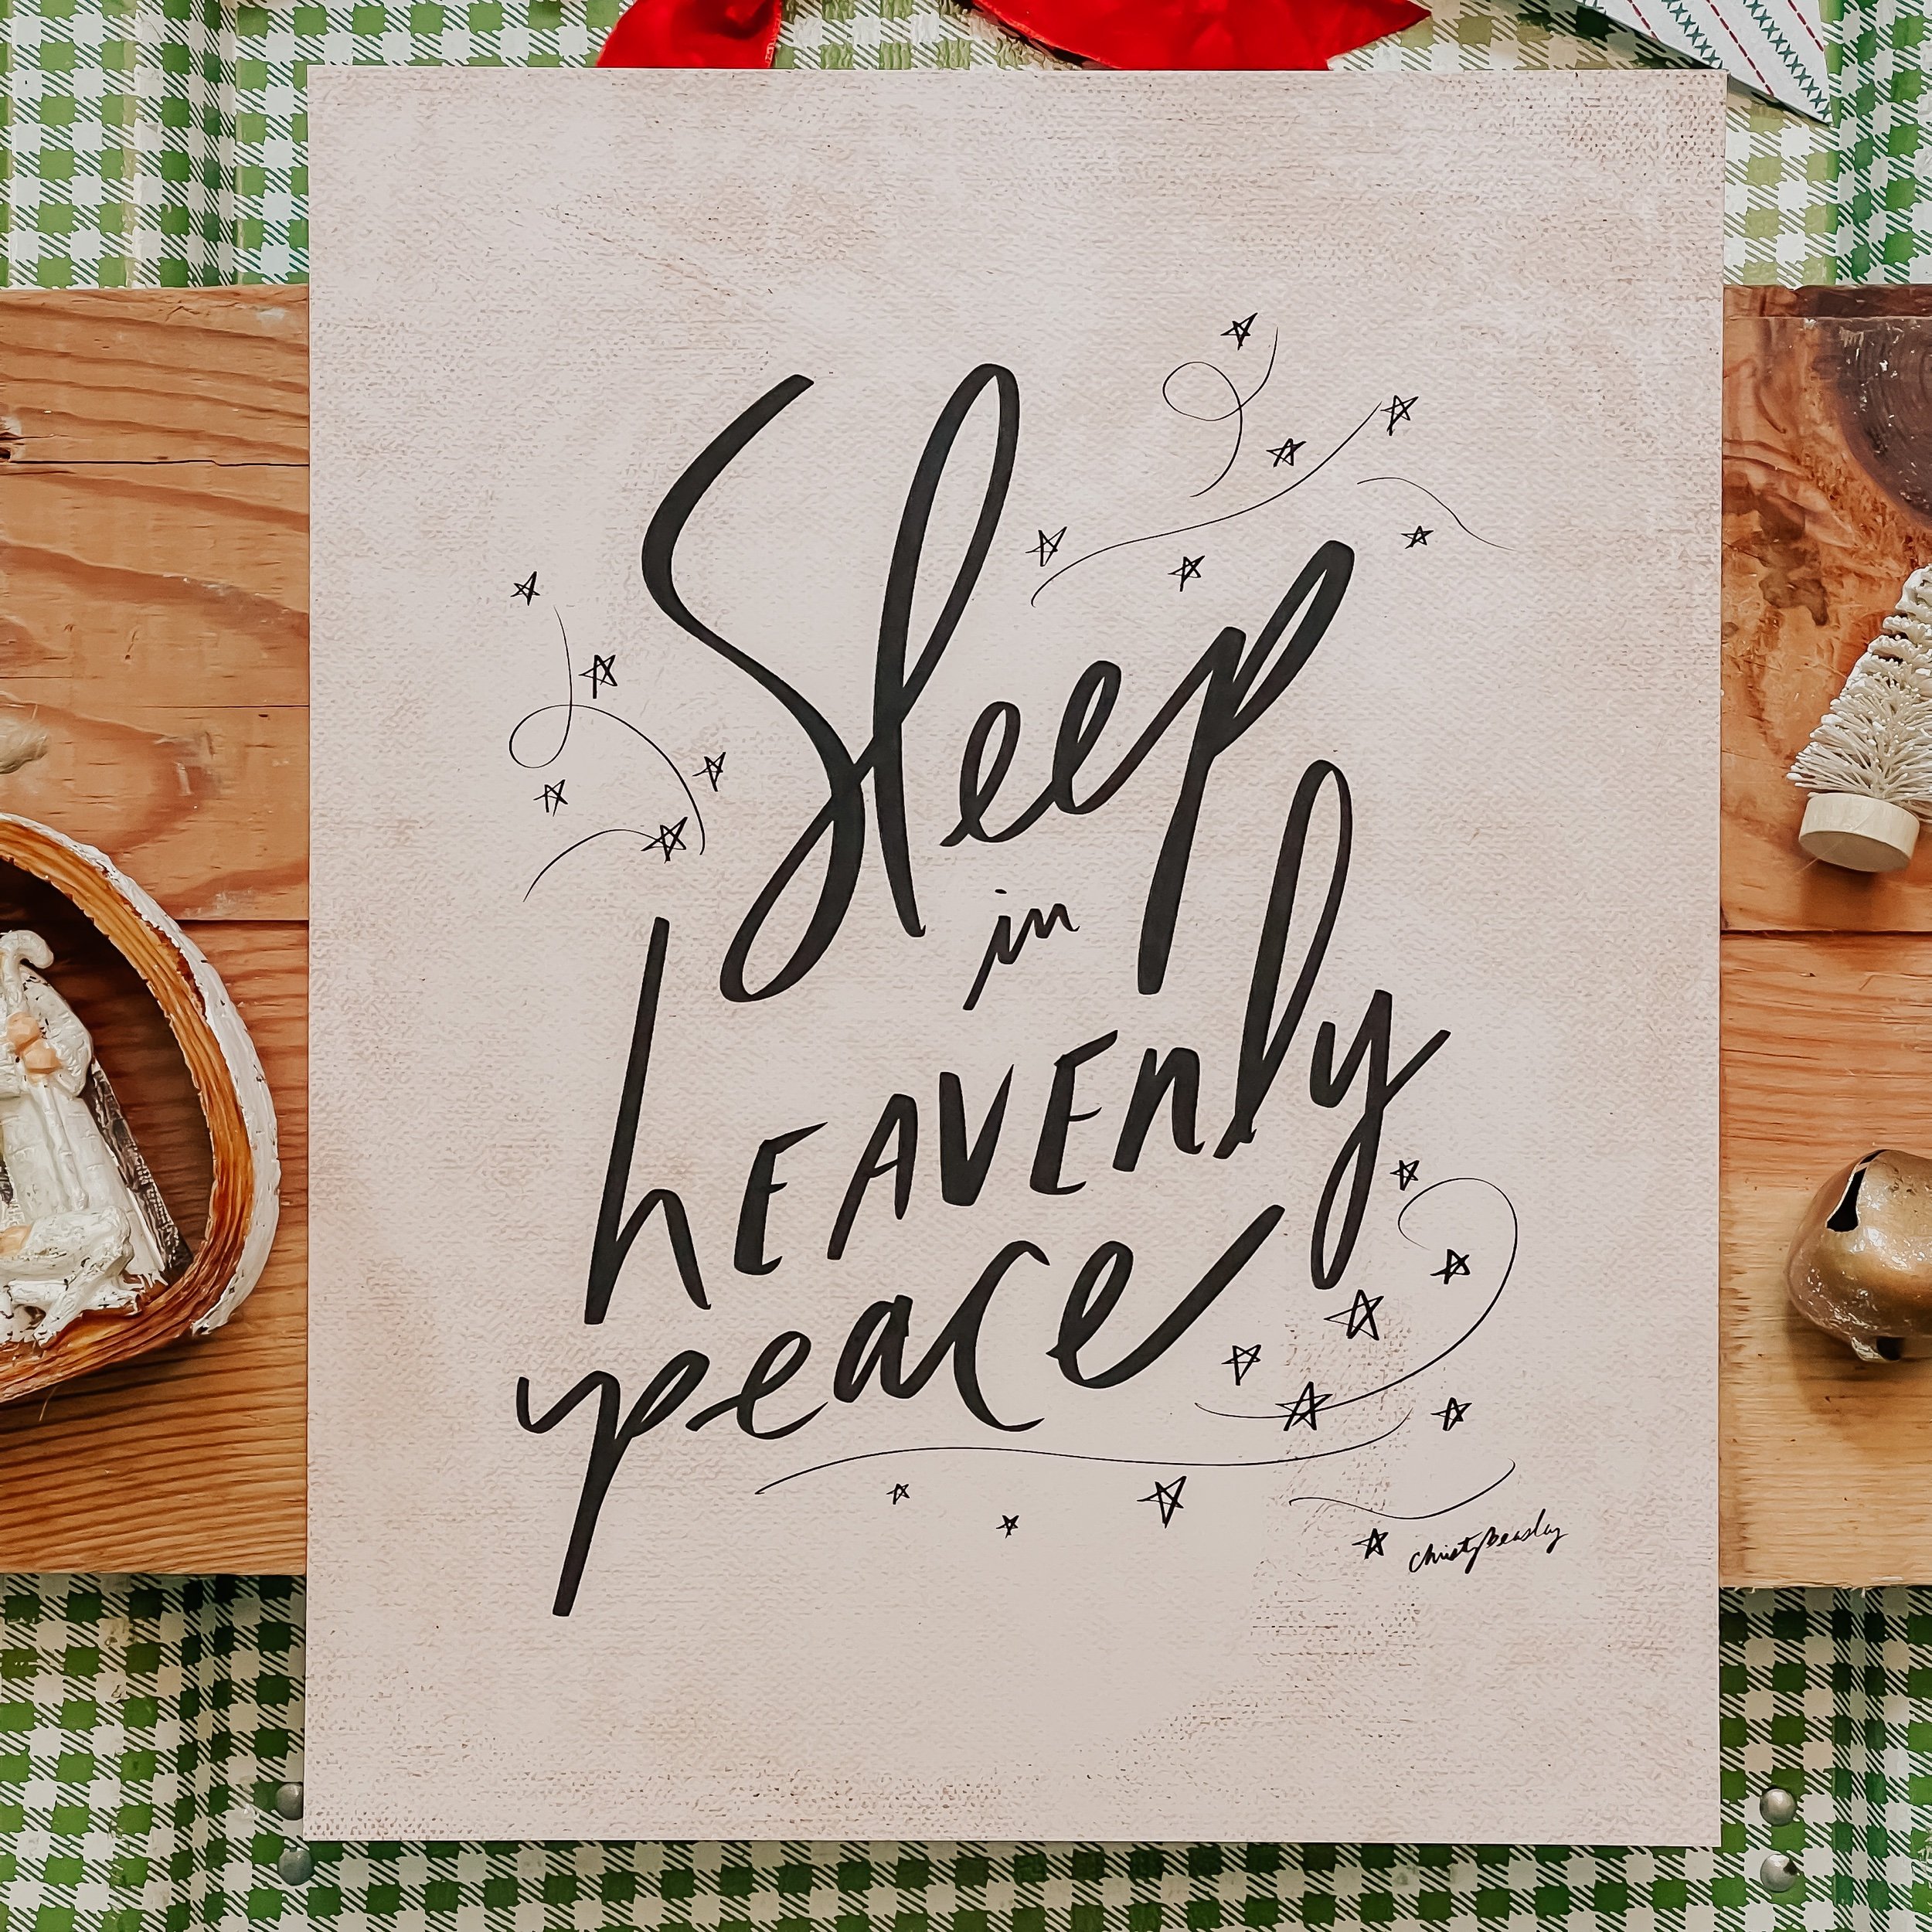 Sleep
in
hEAVEnly
peace
Christy Beasley